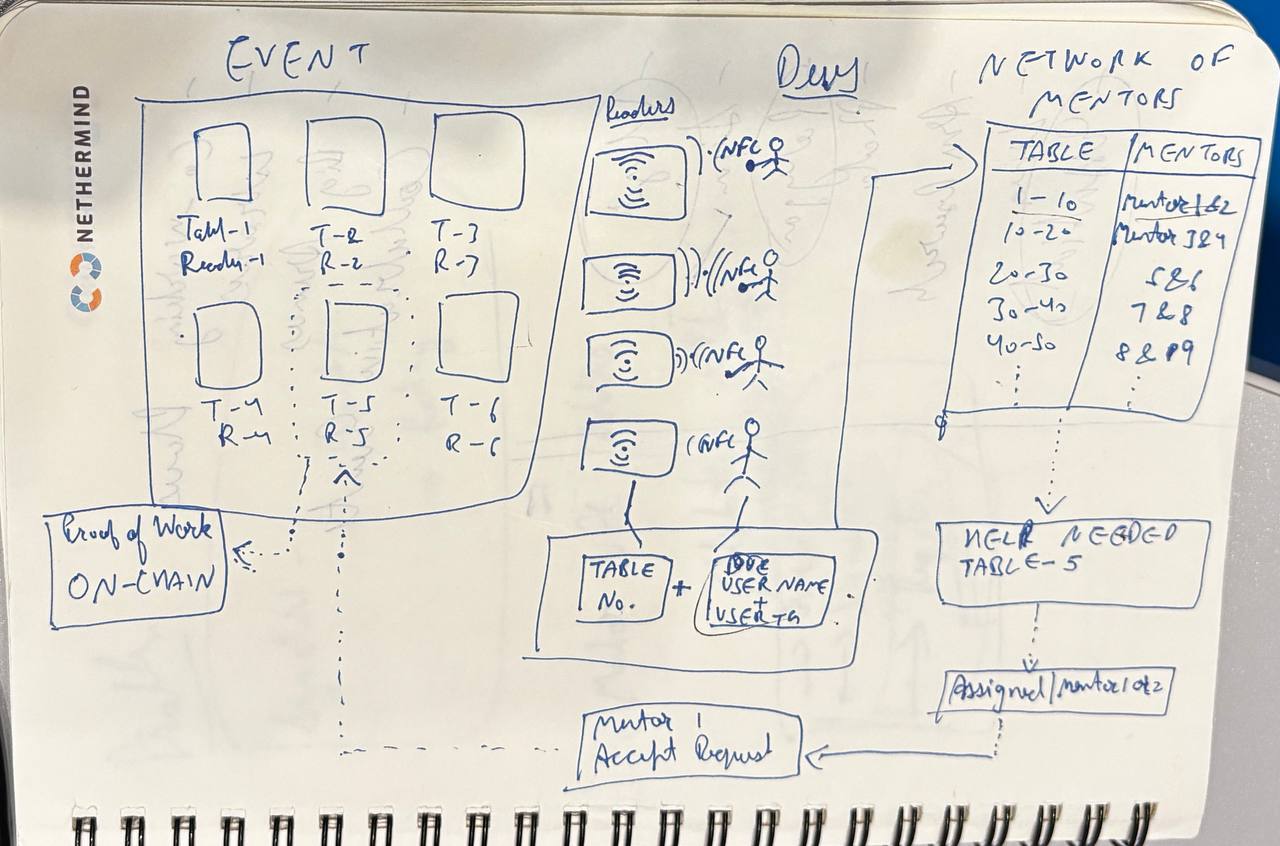 NETHERMIND
EVENT
Tabl-1
Reader-1
T-2
R-2
T-3
R-3
T-4
R-4
T-5
R-5
T-6
R-6
Proof of Work
ON-CHAIN
Readers
Devs
NFC
NFC
NFC
NFC
TABLE
No.
+
USER NAME
+
USER TG
NETWORK OF
MENTORS
TABLE MENTORS
1-10 Mentor 1&2
10-20 Mentor 3&4
20-30 5&6
30-40 7&8
40-50 8 & 9
HELP NEEDED
TABLE-5
Assigned/Mentor 1 or 2
Mentor 1
Accept Request